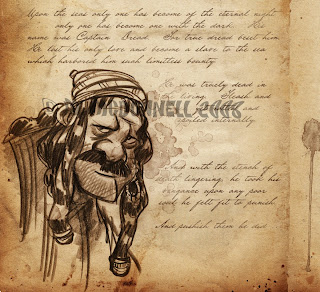 Upon the seas only one has become of the eternal night
only one has become one with the dark. His
name was Captain Dread. In true dread beset him.
He lost his only love and become a slave to the sea
which harbored him such limitless bounty
He was truely dead in
the living. Flesh and
and
spoiled internally.
And with the stench of
death lingering, he took his
vengance upon any poor
soul he felt fit to punish.
And punish them he did